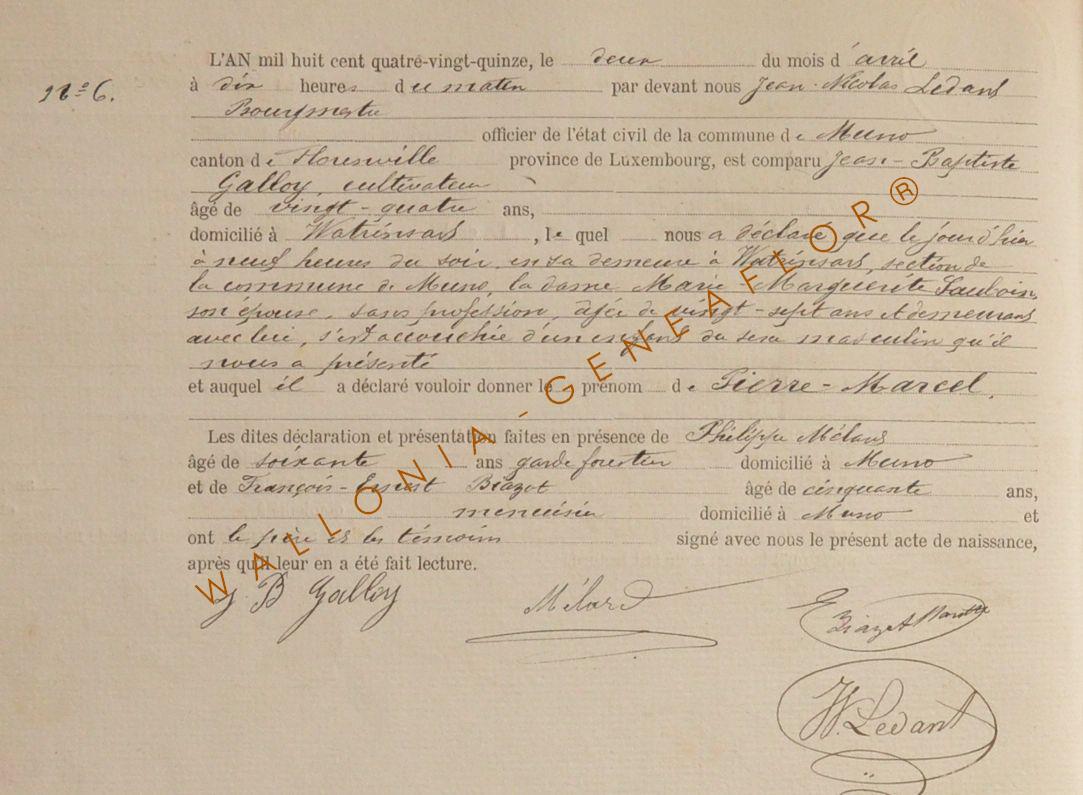 N° 6.
L'AN mil huit cent quatre-vingt-quinze, le deux du mois d'avril
à dix heures du matin par devant nous Jean-Nicolas Ledant
Bourgmestre
officier de l'état civil de la commune de Muno
canton de Florenville province de Luxembourg, est comparu Jean-Baptiste
Galloy, cultivateur
âgé de vingt-quatre ans,
domicilié à Watrinsart, lequel nous a déclaré que le jour d'hier
à neuf heures du soir en sa demeure à Watrinsart, section de
la commune de Muno, la dame Marie-Marguerite
son épouse, sans profession, âgée de vingt-sept ans et demeurant
avec lui, s'est accouchée d'un enfant du sexe masculin qu'il
nous a présenté
et auquel il a déclaré vouloir donner le prénom de Pierre-Marcel.
Les dites déclaration et présentation faites en présence de Philippe Mélard
âgé de soixante ans garde forestier domicilié à Muno
et de François-Ernest Biazot âgé de cinquante ans,
menuisier domicilié à Muno et
ont le père et les témoins signé avec nous le présent acte de naissance,
après qu'il leur en a été fait lecture.
J B Galloy Mélard E Biazot
N. Ledant
WALLONIA-GENEAFLOR®